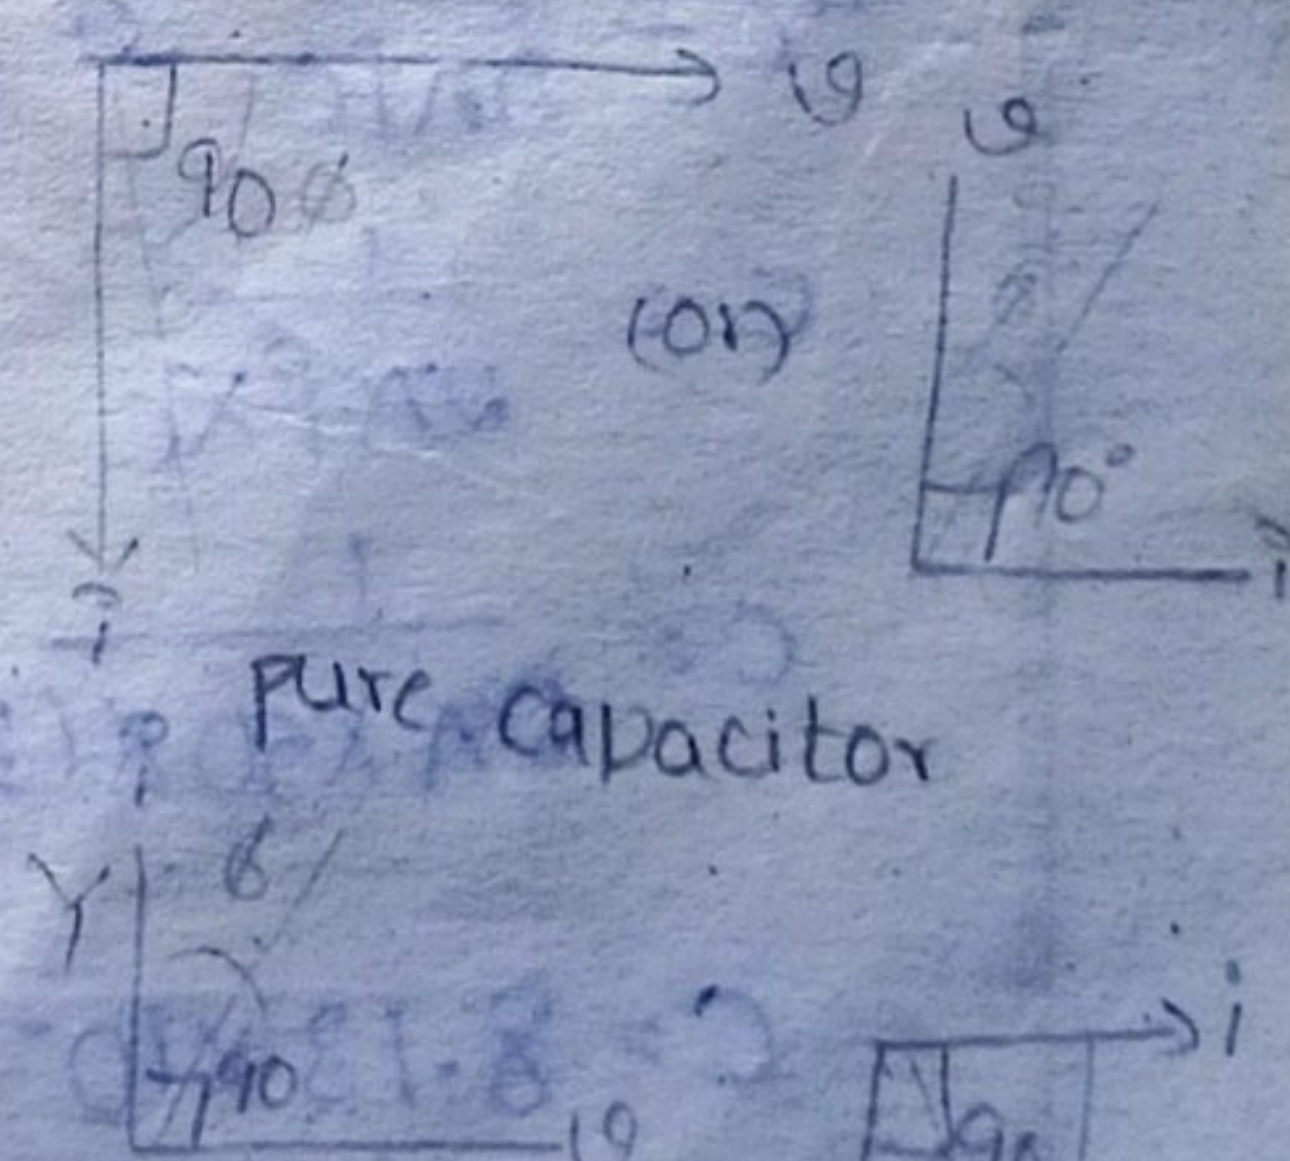 v
v
90 φ
(or)
90°
i
i
pure capacitor
i
Y
φ
i
90
90
v